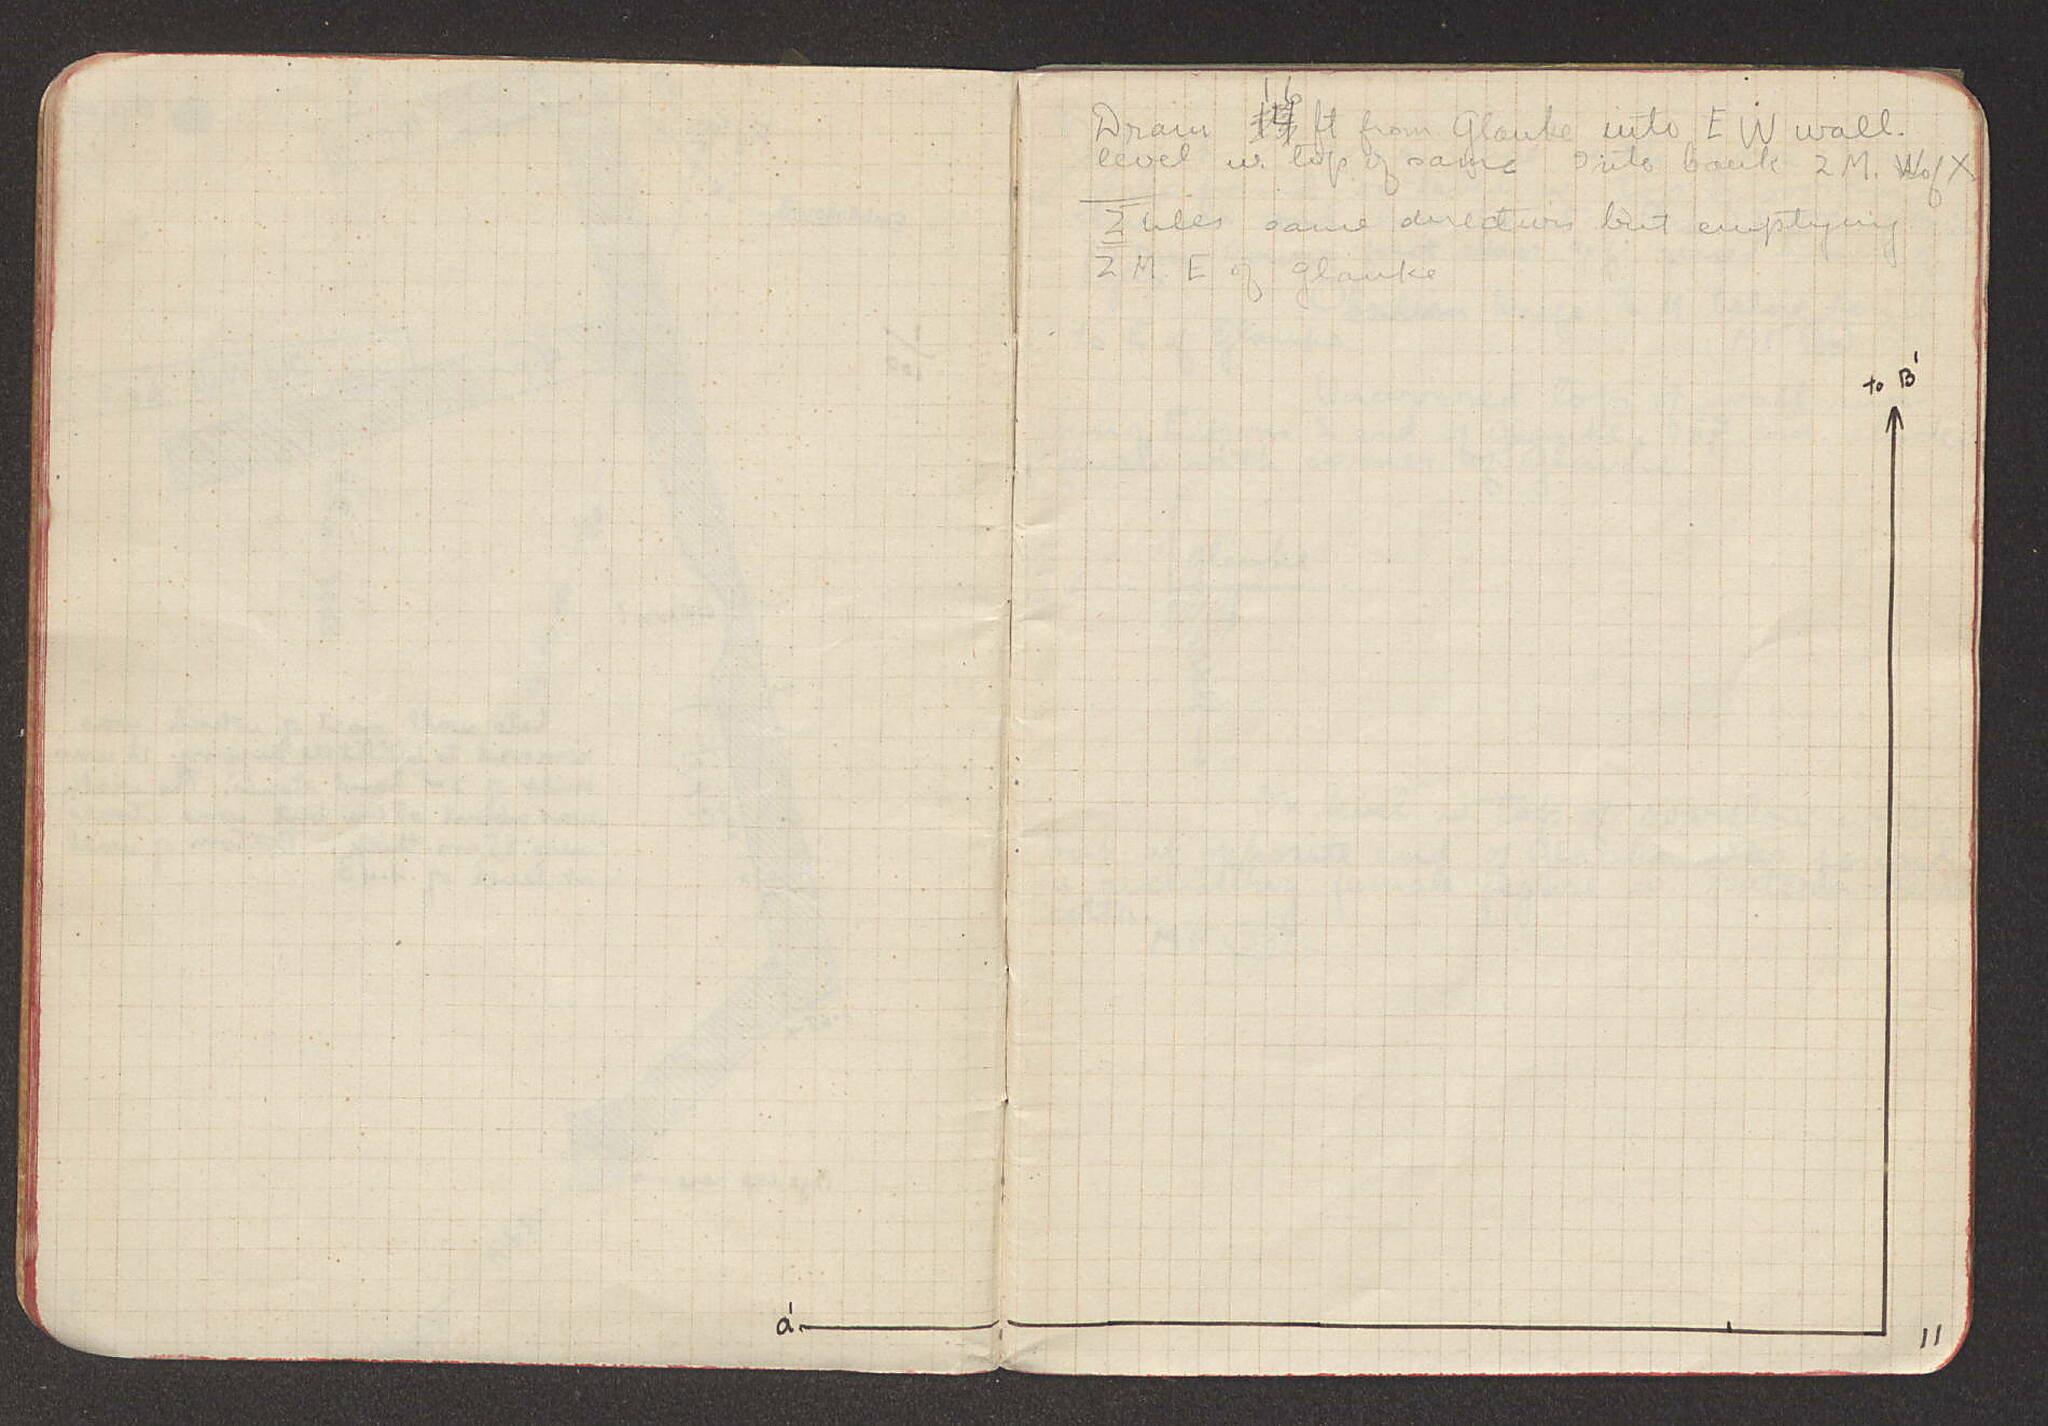 Drain 16 ft from Glauke into E W wall.
level w. top of same & into bank 2 M. W of X
2 tiles same direction but emptying
2 M. E of Glauke
to B'
a'
11